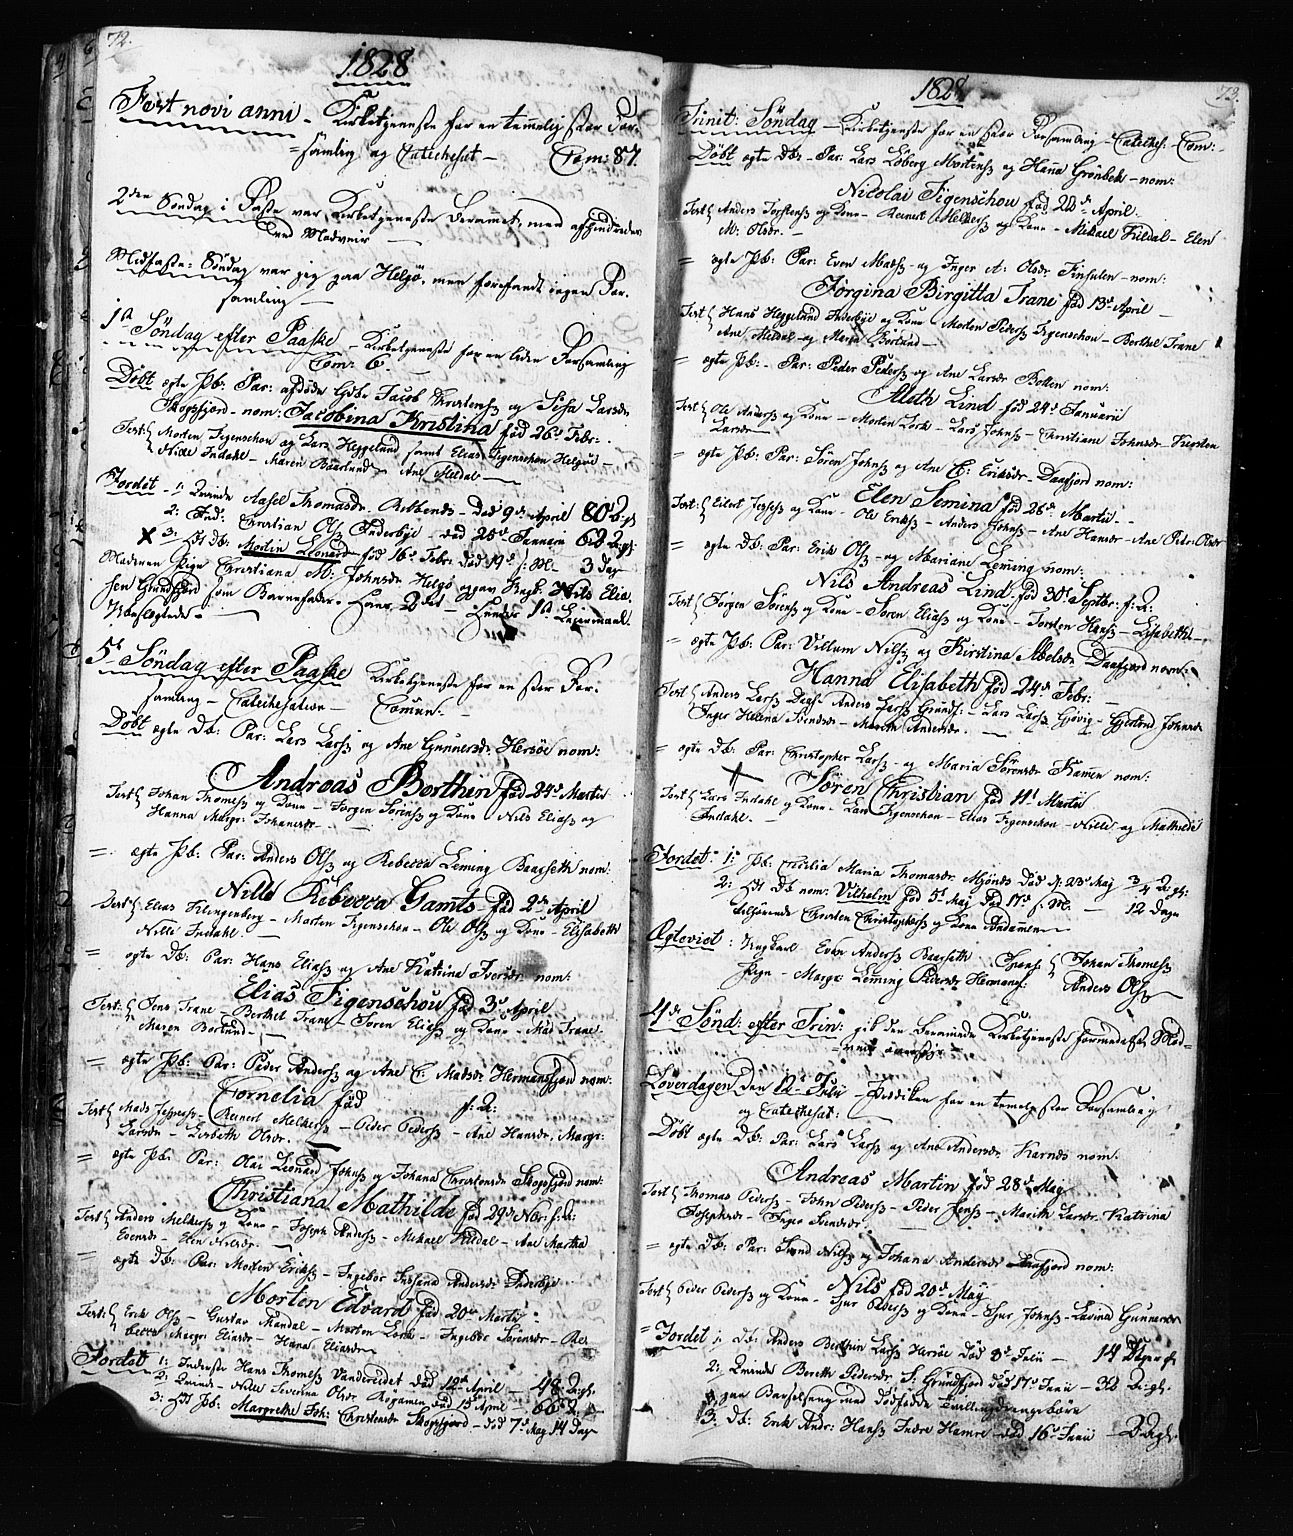 72.
1828
Fest novi anni - Kirketjeneste for en temmelig stor For-
samling og Catechesat - Com: 87.
2den Søndag i Faste var Kirketjeneste berammet, men afhindredes
ved Modveir
Midfaste-Søndag var jeg paa Helgö, men forefandt ingen For-
samling
1ste Søndag efter Paaske - Kirketjeneste for en liden Forsamling
Com: 6
Døbt ægte Pb: Par: afdøde Jacob Christens og Lars
Skogsfjord - nom: Jacobina Kristina fød 26d Febr:
Test: Morten Figenschou og Lars Heggelund samt Elias Figenschou Helgöe -
Nille Indahl - Maren Baarlund - Ane Meldal
Jordet - 1: Qvinde Thomasdr. - død 9d April 80 2gl
2: Ind: Christian Ols Inderbye - død 25d Januarii 62 2gl
3: Db: Mortin Leonard fød 16d Febr: død 19d s: M: 3 dage
Pige Christiana M: Johnsdr Helgö opgav Ungk: Nils Elia-
sen Grundfjord som Barnefader - Hans 2det - Hendes 1ste Leiermaal.
5te Søndag efter Paaske Kirketjeneste for en stor For-
samling - Catechesation - Comun: -
Døbt ægte Db: Par: Lars Lars og Ane Gunnersdr. Hersöe nom:
Andreas Berthin fød 24d Martii
Test: Johan Thomes og Kone - Jørgen Sørens og Kone - Nils Elias og
Hanna Margr: Johansdr.
= ægte Pb: Par: Anders Ols og Rebecca Leming nom:
Nille Rebecca Gamts fød 2d April
Test: Elias Klingenberg - Morten Figenschou - Ole Ols og Kone - Elisabeth
Nille Indahl.
= ægte Db: Par: Hans Elias og Ane Katrina Iversdr. nom:
Elias Figenschou fød 3d April
Test: Jens Trane - Berthel Trane - Søren Elias og Kone - Mad Trane -
Maren Borlund -
= ægte Pb: Par: Peder Anders og Ane C: Madsdr. Hermansfjord nom:
Cornelia fød f: A:
Test: Mads - Reinert Melkers - Peder Peders - Ane Hansdr. Margr:
Larsdr - Lisbeth Olsdr.
= ægte Pb: Par: Olai Leonard Johns og Johana Christensdr Skogsfjord nom:
Christiana Mathilde fød 29d Nbr: f: A:
Test: Anders Melkers og Kone - Joseph Anders - Mikael Kildal - Ane Martha
Evensdr - Elen Nilsdr.
= ægte Db: Par: Morten Eriks - Ingebor Susana Andersdr. Inderbye
Morten Edvard fød 20d Martii
Test: Erik Ols - Gustav Mandal - Morten Lork - Ingebor Sørensdr - Re-
becca Margr: Eliasdr - Hana Eliasdr
Jordet 1: Indenste Hans Thomes Vanderejdet død 12d April - 48 2gl.
2: Qvinde - Nille Severina Olsdr. død 15d April - 66 2
3: Pb: Margrethe Joh: Christensdr Skogsfjord - død 7d Maj 14 dage
73.
1828
Trinit: Søndag - Kirketjeneste for en stor Forsamling - Cateches. - Com:
Døbt ægte Db: - Par: Lars Løberg Mortens og Hanna Grönbek - nom:
Nicolai Figenschou fød 22d April.
Test: Anders Torstens og Kone - Reinert Melkers og Kone - Mikael Kildal - Elen
M: Olsdr. -
= ægte Pb: Par: Even Mads og Inger A: Olsdr Finhulen - nom:
Jørgina Birgitta Trane fød 13d April -
Test: Hans Heggelund Inderbye og Kone Morten Peders Figenschou - Berthel Trane
Ane Meldal - og Maria Borlund -
= ægte Pb: - Par: Peder Peders og Ane Larsdr Botten nom:
Aleth Lind fød 24d Januarii
Test: Ole Anders og Kone - Morten Lork - Lars Johns - Christiane Johnsdr - Kirsten
Larsdr
= ægte Pb: Par: Søren Johns og Ane E: Eriksdr - Daafjord nom:
Elen Semina fød 26d Martii -
Test: Eilert Jepes og Kone - Ole Eriks - Anders Johns - Ane Hansdr - Ane Petr: Olsdr
= ægte Db: Par: Erik Ols - og Mariane Leming nom:
Nils Andreas Lind fød 30d Septbr: f: A:
Test: Jørgen Sørens og Kone - Søren Elias og Kone - Torsten Hans - Lisabeth -
= ægte Pb: Par: Villum Nils og Kirstina Abelsdr. Daafjord nom:
Hanna Elisabeth fød 24d Febr: -
Test: Anders Lars Anders Lars Grundf: - Lars Lars Gjøvig - Gjertrud Johansdr
Inger Helena Svendsdr - Marith Andersdr.
= ægte Db: Par: Christopher Lars - og Maria Sørensdr Kamen nom:
Søren Christian fød 11d Martii
Test: Lars Indahl og Kone - Lars Figenschou - Elias Figenschou - Nille og Mathilde
Indahl. -
Jordet: 1: Pb: Cecilia Maria Thomasdr. Mjönes død d: 23d Maj 3/4 2gl:
2: Db nom: Vilhelm fød 5d Maj død 17d s: M: - 12 dage
tilhørende Christen Christophers og Kone Andamen
Ægteviet: Ungkarl Even Anders Johan Thomes
Pigen - Margr: Lemming Pedersdr Hermansf: Anders Ols
4de Sønd: efter Trin: gik den berammede Kirketjeneste formedelst Mod-
vind overstyr
Løverdagen den 12te Julii - Prædiken for en temelig stor Forsamling
og Catecheset:
Døbt ægte Db: Par: Lars Lars og Ane Andersdr. Karnes nom:
Andreas Martin fød 28d Maj
Test: Thomas Peders - John Peders - Peder Jens - Marith Larsdr. Katrina
Josephsdr - Inger Svensdr
= ægte Db: Par: Svend Nils og Johana Andersdr Daafjord nom:
Nils fød 20d Maj
Test: Peder Peders og Kone - Sjur Peders og Kone - Sjur Johns - Lavina Gunnersdr
= Jordet 1: Db: Anders Berthin Lars Hersöe død 8d Junii - 14 Uger
2: Qvinde Bereth Pedersdr. S: Grundfjord død 17d Junii - 32 2gl.
paa Barselseng med dødfødde
3: Db: Erik Andr: Hans Indre Hamre død 16d Junii - 2 2gl.